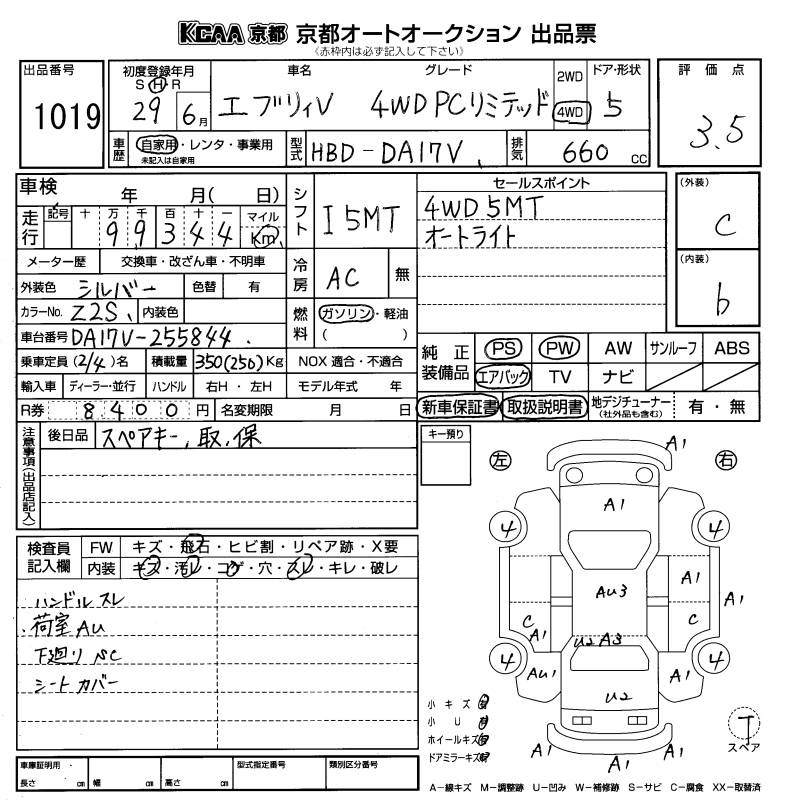 KCAA 京都 京都オートオークション 出品票
(赤枠内は必ず記入して下さい)
出品番号 1019
初度登録年月 S H R 29 6月
車名 エブリィV
グレード 4WD PCリミテッド
2WD 4WD
ドア・形状 5
評価点 3.5
車歴 自家用・レンタ・事業用
未記入は自家用
型式 HBD-DA17V
排気 660 cc
車検 年 月( 日)
シフト I 5MT
セールスポイント
4WD 5MT
オートライト
(外装) C
(内装) b
走行 記号 十 万 千 百 十 一 マイル Km
9 9 3 4 4
メーター歴 交換車・改ざん車・不明車
冷房 AC 無
外装色 シルバー 色替 有
カラーNo. Z2S 内装色
燃料 ガソリン・軽油
( )
車台番号 DA17V-255844
乗車定員 (2/4)名 積載量 350(250)Kg NOX 適合・不適合
輸入車 ディーラー・並行 ハンドル 右H・左H モデル年式 年
R券 8400円 名変期限 月 日
純正装備品 PS PW AW サンルーフ ABS
エアバック TV ナビ
新車保証書 取扱説明書 地デジチューナー (社外品も含む) 有・無
注意事項(出品店記入)
後日品 スペアキー, 取, 保
キー預り
左 右
検査員記入欄
FW キズ・飛石・ヒビ割・リペア跡・X要
内装 キズ・汚レ・コゲ・穴・スレ・キレ・破レ
ハンドル スレ
荷室 AU
下廻り SC
シート カバー
A1
A1
4 4
AU3
A1
A1
C
A1
C
U2 A3
4 4
AU1
A1
U2
A1 A1 A1
小キズ
小U
ホイールキズ
ドアミラーキズ
T
スペア
車庫証明用
長さ cm 幅 cm 高さ cm
型式指定番号
類別区分番号
A-線キズ M-調整跡 U-凹み W-補修跡 S-サビ C-腐食 XX-取替済